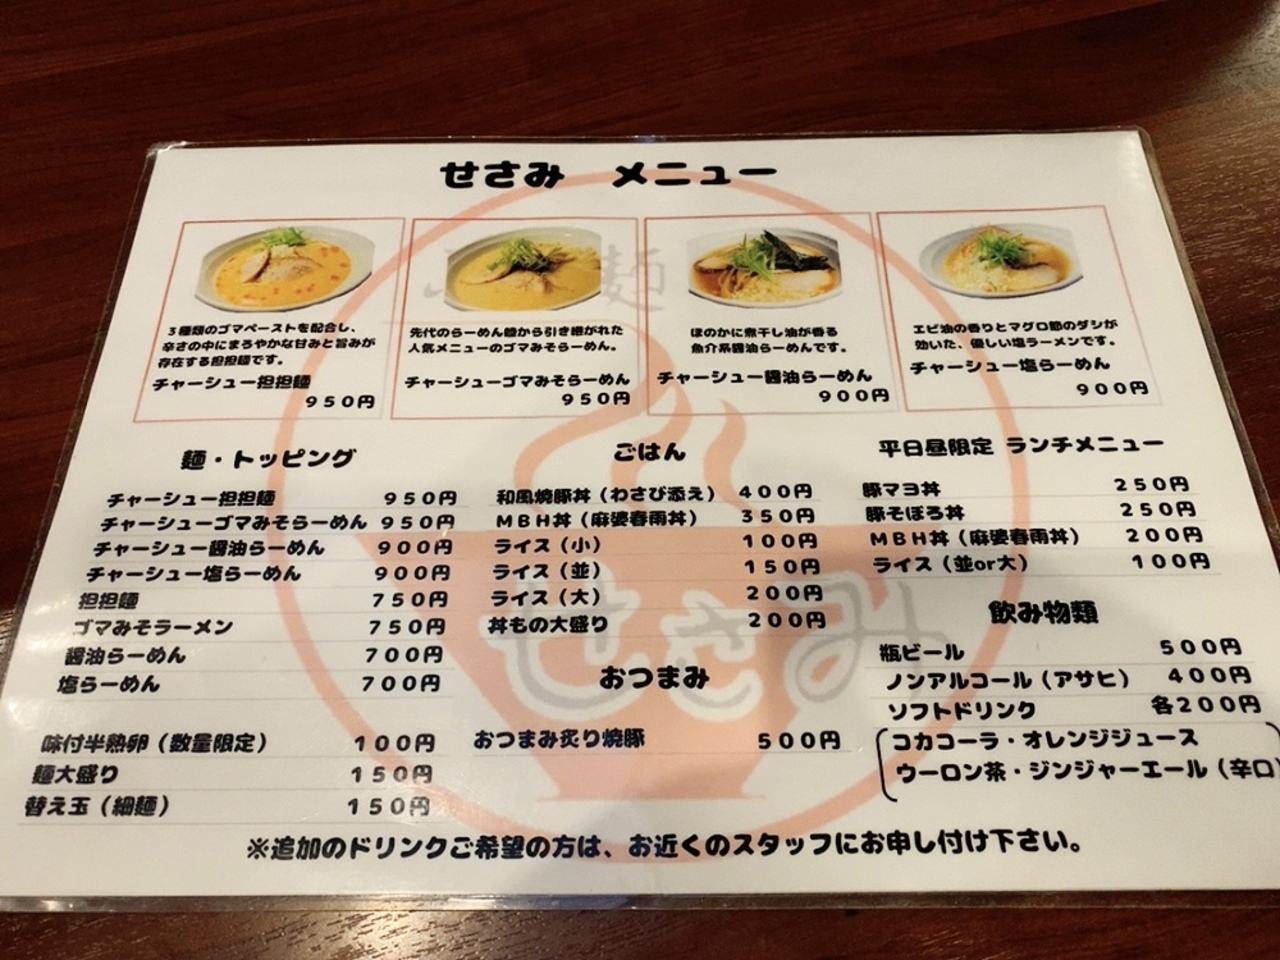 せさみ メニュー
3種類のゴマペーストを配合し、
辛さの中にまろやかな甘みと旨みが
存在する担担麺です。
チャーシュー担担麺
950円
先代のらーめん睦から引き継がれた
人気メニューのゴマみそらーめん。
チャーシューゴマみそらーめん
950円
ほのかに煮干し油が香る
魚介系醤油らーめんです。
チャーシュー醤油らーめん
900円
エビ油の香りとマグロ節のダシが
効いた、優しい塩ラーメンです。
チャーシュー塩らーめん
900円
麺・トッピング
チャーシュー担担麺 950円
チャーシューゴマみそらーめん 950円
チャーシュー醤油らーめん 900円
チャーシュー塩らーめん 900円
担担麺 750円
ゴマみそラーメン 750円
醤油らーめん 700円
塩らーめん 700円
味付半熟卵(数量限定) 100円
麺大盛り 150円
替え玉(細麺) 150円
ごはん
和風焼豚丼(わさび添え) 400円
MBH丼(麻婆春雨丼) 350円
ライス(小) 100円
ライス(並) 150円
ライス(大) 200円
丼もの大盛り 200円
おつまみ
おつまみ炙り焼豚 500円
平日昼限定 ランチメニュー
豚マヨ丼 250円
豚そぼろ丼 250円
MBH丼(麻婆春雨丼) 200円
ライス(並or大) 100円
飲み物類
瓶ビール 500円
ノンアルコール(アサヒ) 400円
ソフトドリンク 各200円
コカコーラ・オレンジジュース
ウーロン茶・ジンジャーエール(辛口)
※追加のドリンクご希望の方は、お近くのスタッフにお申し付け下さい。
麺
せさみ